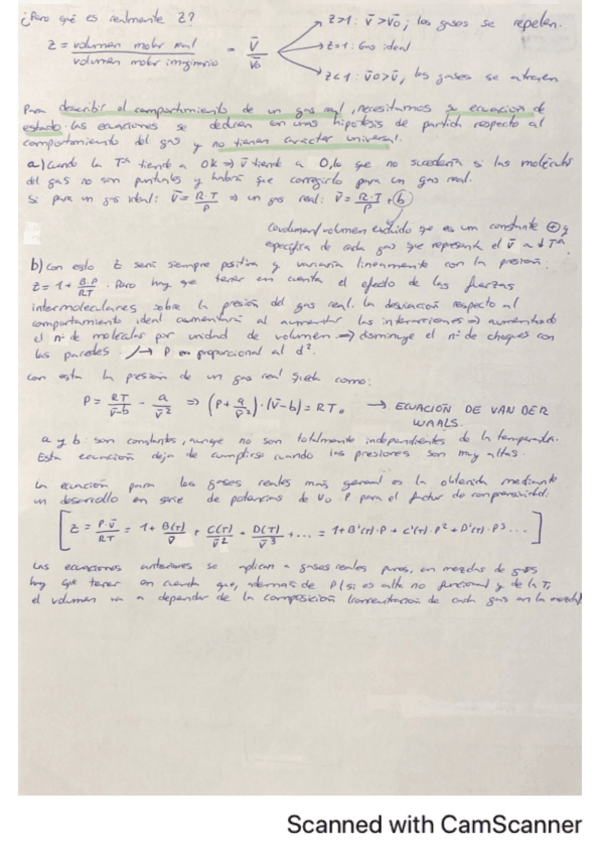 ¿Pero qué es realmente Z?
Z = volumen molar real / volumen molar imaginario = V̄ / V̄o
Z>1: V̄>V̄o; los gases se repelen.
Z=1: Gas ideal
Z<1: V̄o>V̄, los gases se atraen
Para describir el comportamiento de un gas real, necesitamos su ecuación de
estado. Las ecuaciones se deducen en unas hipótesis de partida respecto al
comportamiento del gas y no tienen carácter universal.
a) Cuando la Tª tiende a 0K => V̄ tiende a 0, lo que no sucedería si las moléculas
del gas no son puntuales y habrá que corregirlo para un gas real.
Si para un gas ideal: V̄ = R·T/P => un gas real: V̄ = R·T/P + b
Covolumen/volumen excluido que es una constante ⊕ y
específica de cada gas que representa el V̄ a ↓Tª.
b) Con esto Z será siempre positiva y variaría linealmente con la presión:
Z = 1 + B·P/RT. Pero hay que tener en cuenta el efecto de las fuerzas
intermoleculares sobre la presión del gas real. La desviación respecto al
comportamiento ideal aumentará al aumentar las interacciones => aumentando
el nº de moléculas por unidad de volumen => disminuye el nº de choques con
las paredes → P es proporcional al d².
Con esta la presión de un gas real queda como:
P = RT/(V̄-b) - a/V̄² => (P + a/V̄²)·(V̄-b) = RT. → ECUACIÓN DE VAN DER
WAALS.
a y b: son constantes, aunque no son totalmente independientes de la temperatura.
Esta ecuación deja de cumplirse cuando las presiones son muy altas.
La ecuación para los gases reales más general es la obtenida mediante
un desarrollo en serie de potencias de V o P para el factor de compresibilidad:
[Z = P·V̄/RT = 1 + B(T)/V̄ + C(T)/V̄² + D(T)/V̄³ + ... = 1 + B'(T)·P + C'(T)·P² + D'(T)·P³ ...]
Las ecuaciones anteriores se aplican a gases reales puros, en mezclas de gases
hay que tener en cuenta que, además de P (si es alta no funciona) y de la T,
el volumen va a depender de la composición (concentración de cada gas en la mezcla)
Scanned with CamScanner